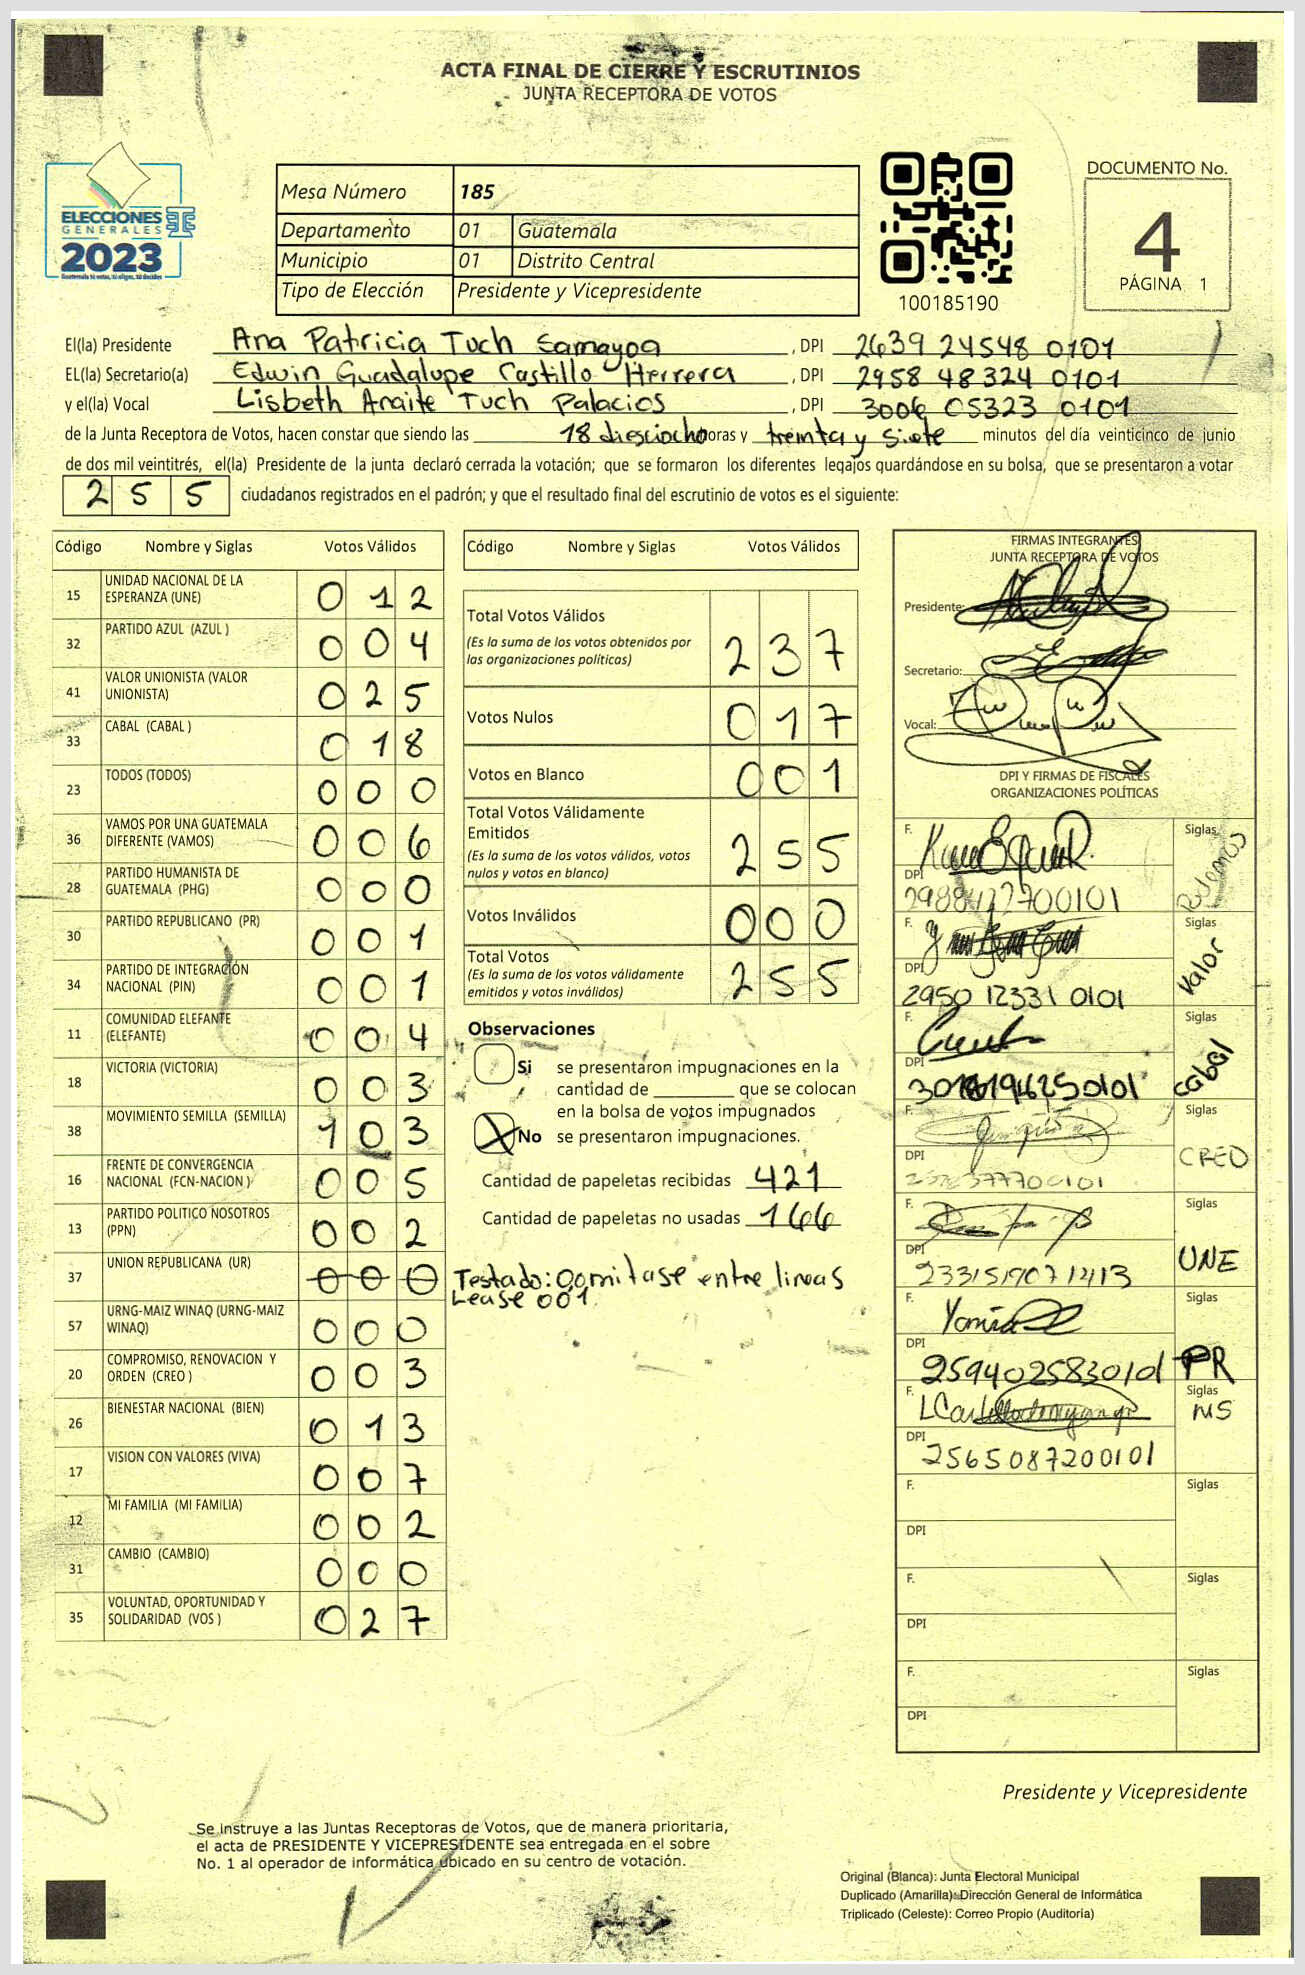 ACTA FINAL DE CIERRE Y ESCRUTINIOS
JUNTA RECEPTORA DE VOTOS
ELECCIONES
GENERALES
2023
Mesa Número 185
Departamento 01 Guatemala
Municipio 01 Distrito Central
Tipo de Elección Presidente y Vicepresidente
100185190
DOCUMENTO No.
4
PÁGINA 1
El(la) Presidente Ana Patricia Tuch Samayoa , DPI 2639 24548 0101
EL(la) Secretario(a) Edwin Guadalupe Castillo Herrera , DPI 2958 48324 0101
y el(la) Vocal Lisbeth Anaite Tuch Palacios , DPI 3006 05323 0101
de la Junta Receptora de Votos, hacen constar que siendo las 18 diesciocho horas y treinta y siete minutos del día veinticinco de junio
de dos mil veintitrés, el(la) Presidente de la junta declaró cerrada la votación; que se formaron los diferentes legajos guardándose en su bolsa, que se presentaron a votar
255 ciudadanos registrados en el padrón; y que el resultado final del escrutinio de votos es el siguiente:
Código Nombre y Siglas Votos Válidos
15 UNIDAD NACIONAL DE LA ESPERANZA (UNE) 012
32 PARTIDO AZUL (AZUL ) 004
41 VALOR UNIONISTA (VALOR UNIONISTA) 025
33 CABAL (CABAL ) 018
23 TODOS (TODOS) 000
36 VAMOS POR UNA GUATEMALA DIFERENTE (VAMOS) 006
28 PARTIDO HUMANISTA DE GUATEMALA (PHG) 000
30 PARTIDO REPUBLICANO (PR) 001
34 PARTIDO DE INTEGRACIÓN NACIONAL (PIN) 001
11 COMUNIDAD ELEFANTE (ELEFANTE) 004
18 VICTORIA (VICTORIA) 003
38 MOVIMIENTO SEMILLA (SEMILLA) 103
16 FRENTE DE CONVERGENCIA NACIONAL (FCN-NACION ) 005
13 PARTIDO POLITICO NOSOTROS (PPN) 002
37 UNION REPUBLICANA (UR) 000
57 URNG-MAIZ WINAQ (URNG-MAIZ WINAQ) 000
20 COMPROMISO, RENOVACION Y ORDEN (CREO ) 003
26 BIENESTAR NACIONAL (BIEN) 013
17 VISION CON VALORES (VIVA) 007
12 MI FAMILIA (MI FAMILIA) 002
31 CAMBIO (CAMBIO) 000
35 VOLUNTAD, OPORTUNIDAD Y SOLIDARIDAD (VOS ) 027
Código Nombre y Siglas Votos Válidos
Total Votos Válidos 237
(Es la suma de los votos obtenidos por
las organizaciones políticas)
Votos Nulos 017
Votos en Blanco 001
Total Votos Válidamente
Emitidos 255
(Es la suma de los votos válidos, votos
nulos y votos en blanco)
Votos Inválidos 000
Total Votos 255
(Es la suma de los votos válidamente
emitidos y votos inválidos)
Observaciones
Si se presentaron impugnaciones en la
cantidad de ________ que se colocan
en la bolsa de votos impugnados
No se presentaron impugnaciones.
Cantidad de papeletas recibidas 421
Cantidad de papeletas no usadas 166
Testado: Oomitase entre lineas
Lease 001.
FIRMAS INTEGRANTES
JUNTA RECEPTORA DE VOTOS
Presidente:
Secretario:
Vocal:
DPI Y FIRMAS DE FISCALES
ORGANIZACIONES POLÍTICAS
F. Siglas Podemos
DPI
F. Siglas Valor
DPI 2950 12331 0101
F. Siglas cabal
DPI
F. Siglas CREO
DPI
F. Siglas UNE
DPI
F. Siglas PR
DPI 2594025830101
F. Siglas MS
DPI 2565087200101
F. Siglas
DPI
F. Siglas
DPI
F. Siglas
DPI
Presidente y Vicepresidente
Se instruye a las Juntas Receptoras de Votos, que de manera prioritaria,
el acta de PRESIDENTE Y VICEPRESIDENTE sea entregada en el sobre
No. 1 al operador de informática ubicado en su centro de votación.
Original (Blanca): Junta Electoral Municipal
Duplicado (Amarilla): Dirección General de Informática
Triplicado (Celeste): Correo Propio (Auditoría)